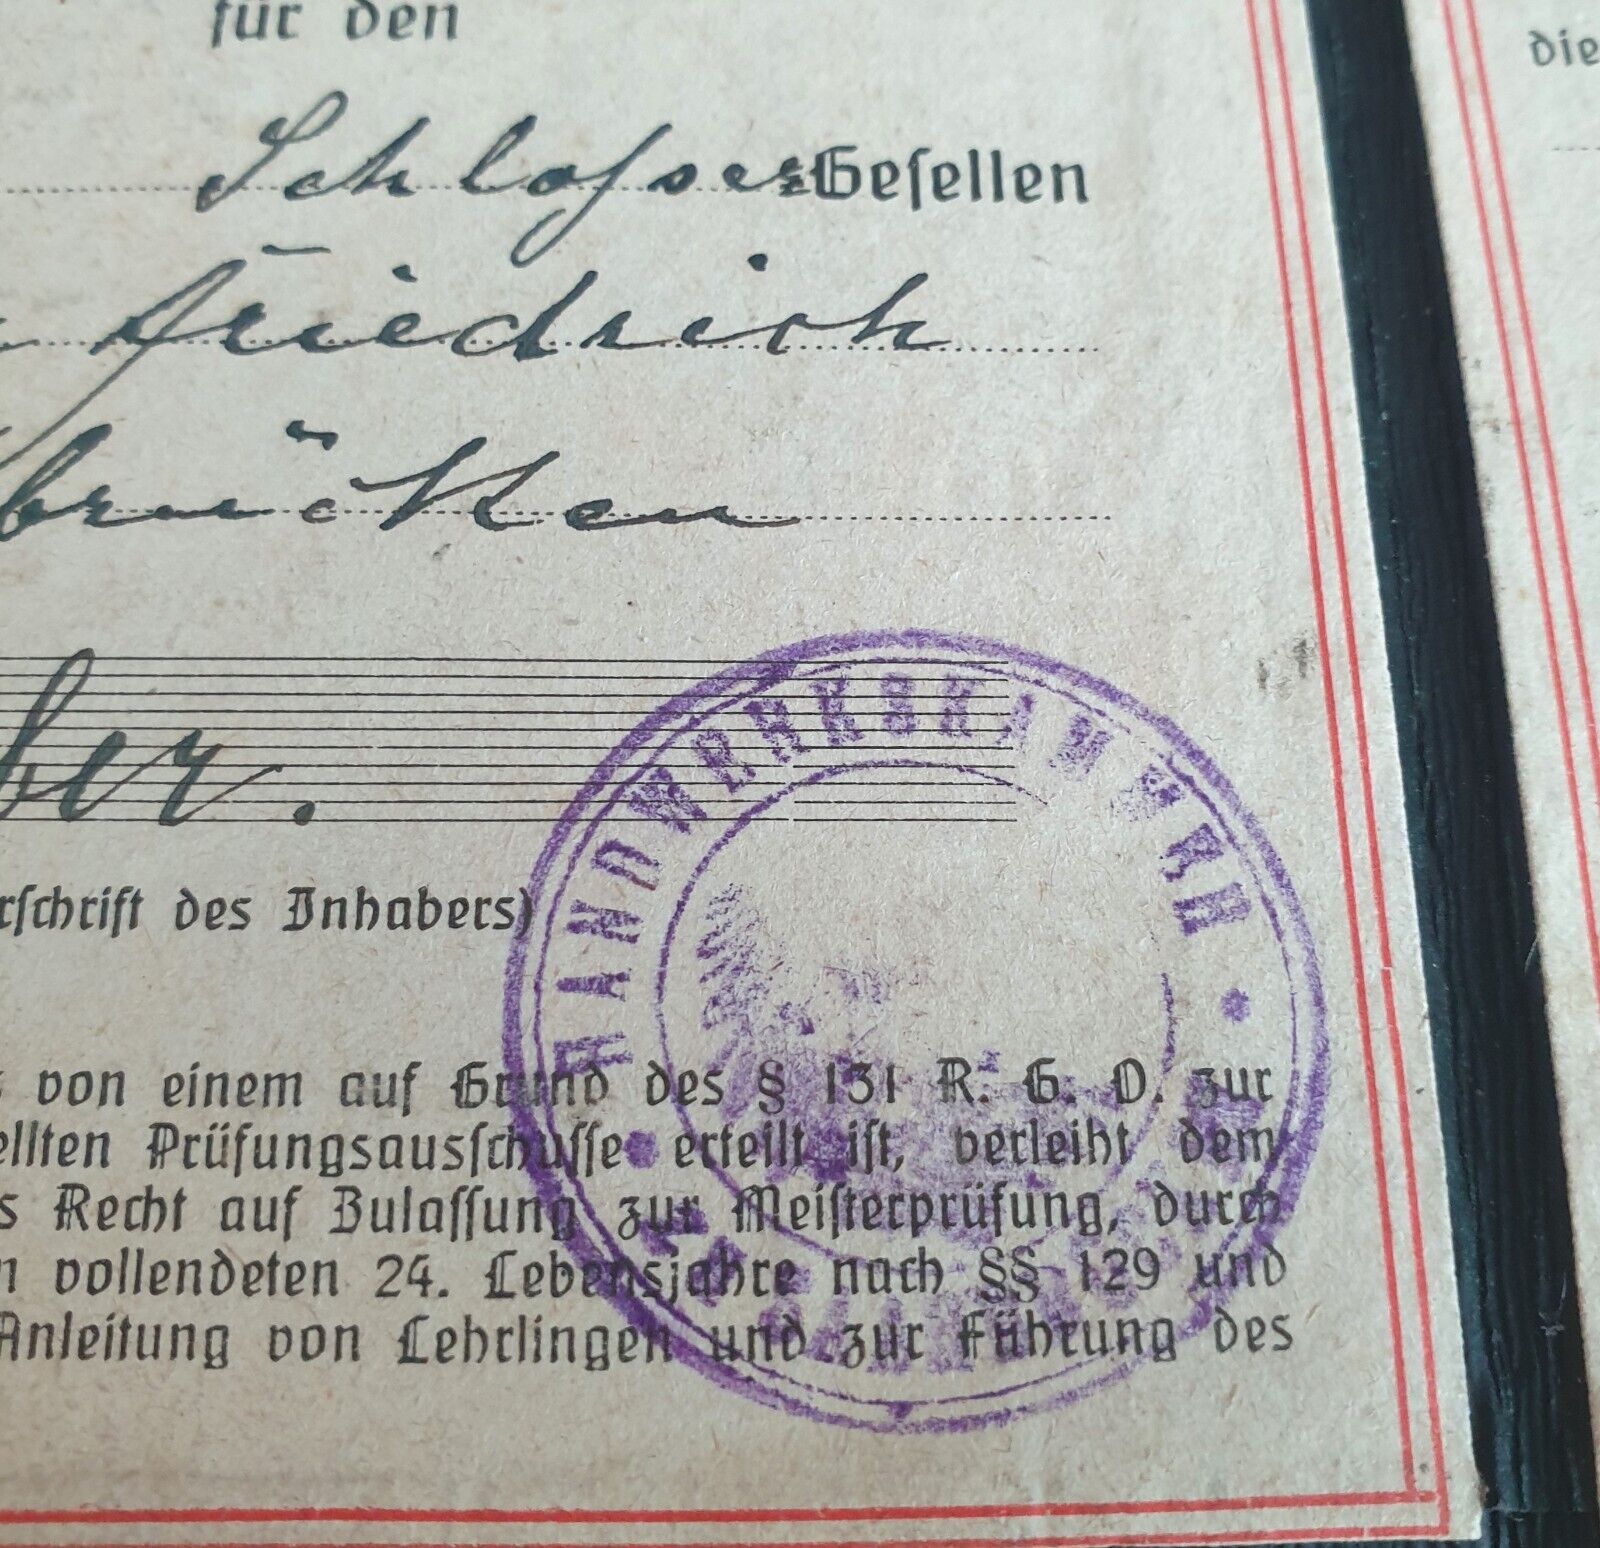 für den
die
Schlosser=Gesellen
Friedrich
brücken
ber.
rschrift des Inhabers)
HANDWERKSKAMMER
von einem auf Grund des § 131 R. G. O. zur
ellten Prüfungsausschusse erteilt ist, verleiht dem
s Recht auf Zulassung zur Meisterprüfung, durch
n vollendeten 24. Lebensjahre nach §§ 129 und
Anleitung von Lehrlingen und zur Führung des